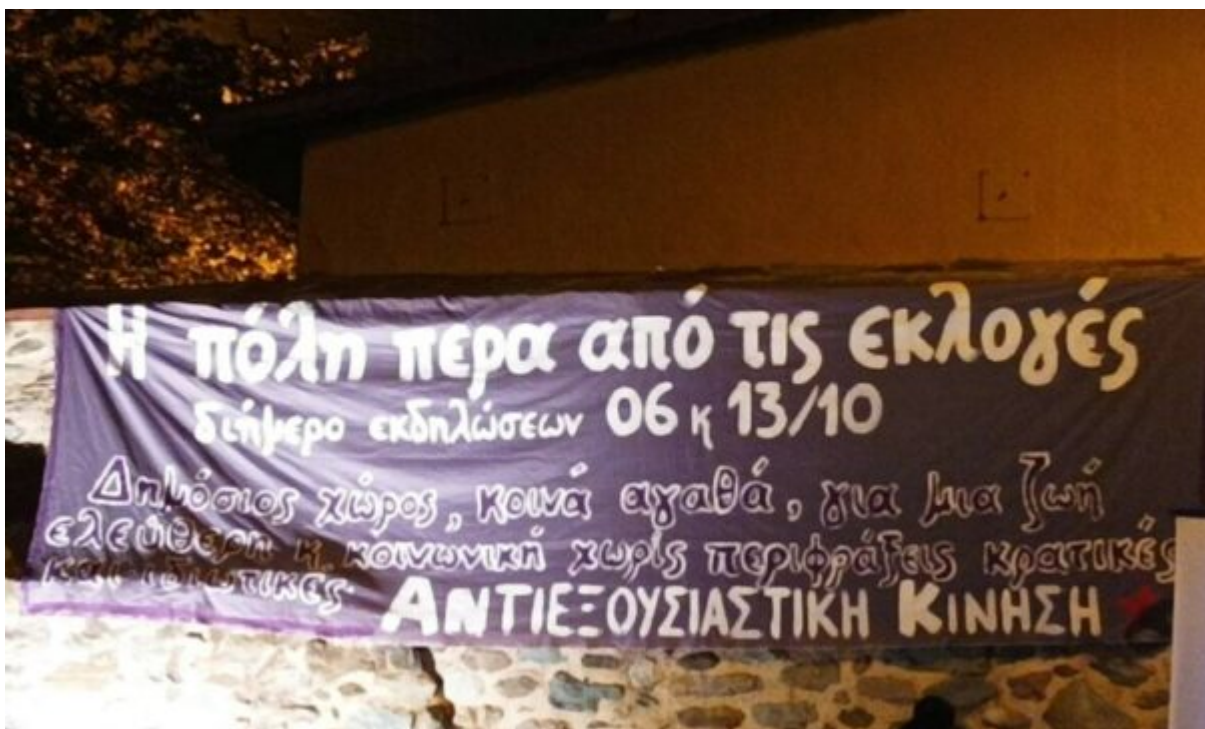 Η πόλη περα από τις εκλογές
διήμερο εκδηλώσεων 06 κ 13/10
Δημόσιος χώρος, κοινά αγαθά, για μια ζωή
ελεύθερη κ κοινωνική χωρίς περιφράξεις κρατικές
και ιδιωτικές
ΑΝΤΙΕΞΟΥΣΙΑΣΤΙΚΗ ΚΙΝΗΣΗ